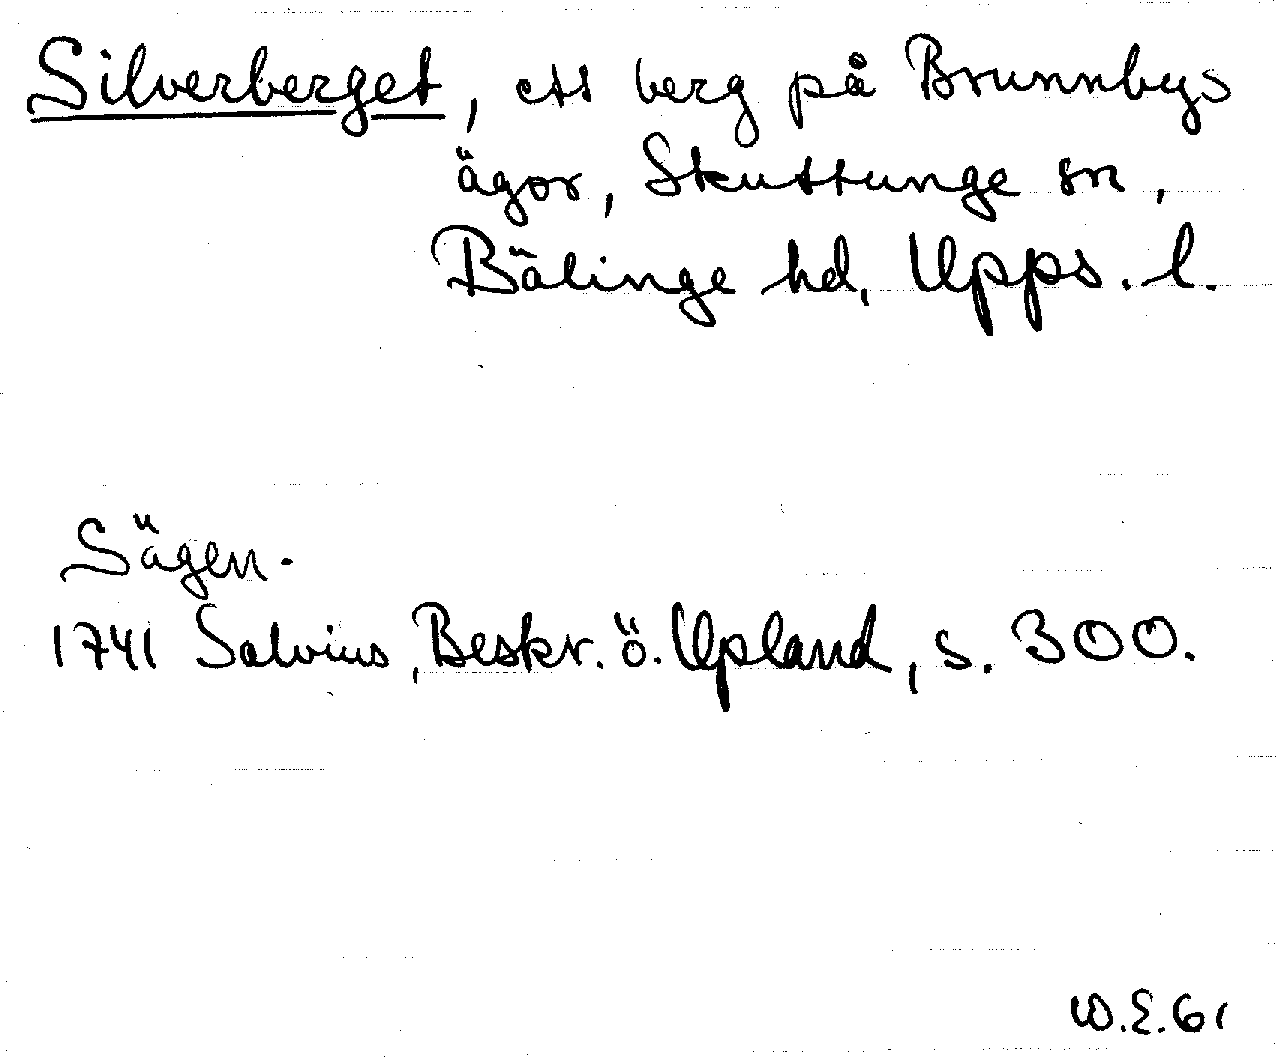 Silverberget, ett berg på Brunnbys
ägor, Skuttunge sn,
Bälinge hd, Upps. l.
Sägen.
1741 Salvius, Beskr. ö. Upland, s. 300.
W.E. 61